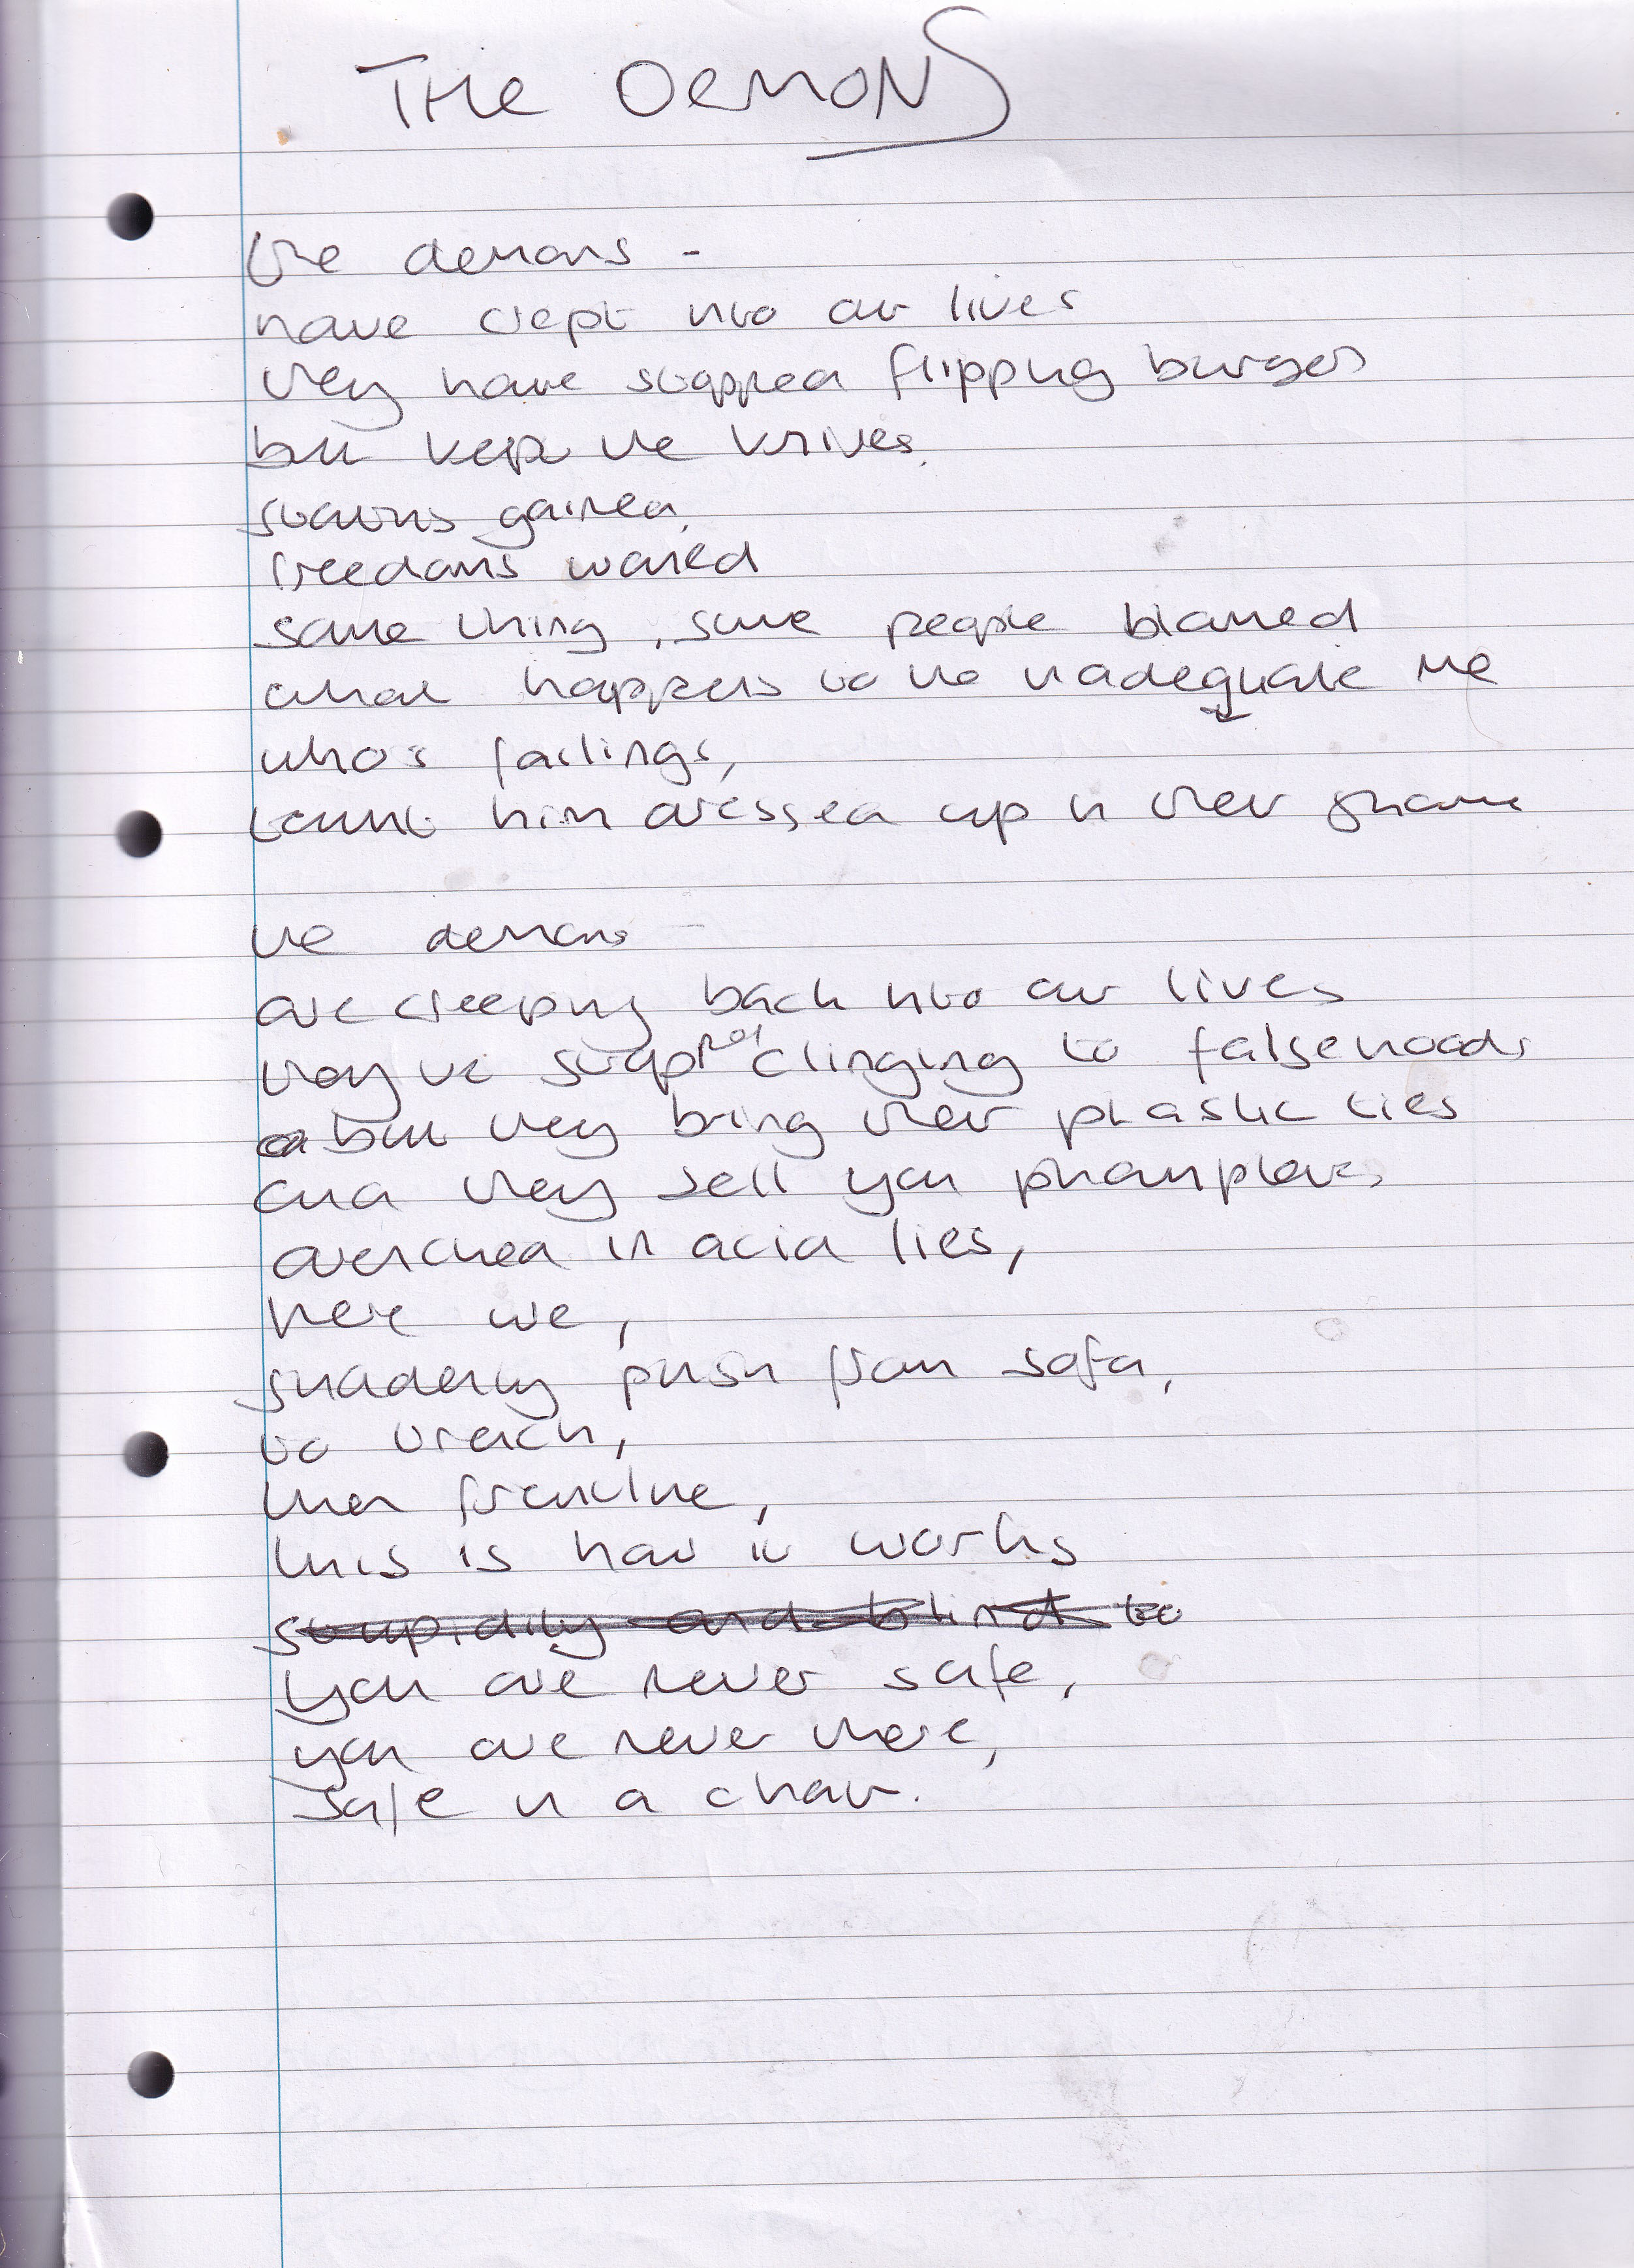 THE DEMONS
the demons -
have crept into our lives
they have stopped flipping burgers
but kept the knives.
stations gained,
freedoms waned
same thing, same people blamed
what happens to the inadequate me
who's failings,
taunt him dressed up in their shame
the demons -
are creeping back into our lives
they've stopped clinging to falsehoods
but they bring their plastic ties
and they sell you
drenched in acid lies,
here we,
suddenly push from sofa,
to trench,
then frontline,
this is how it works
stupidity and blind to
you are never safe,
you are never there,
safe in a chair.